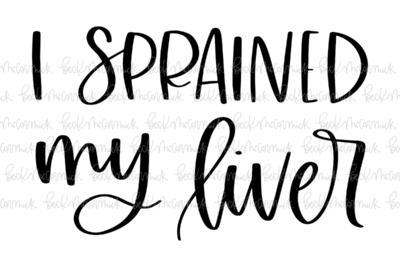 I SPRAINED
my liver